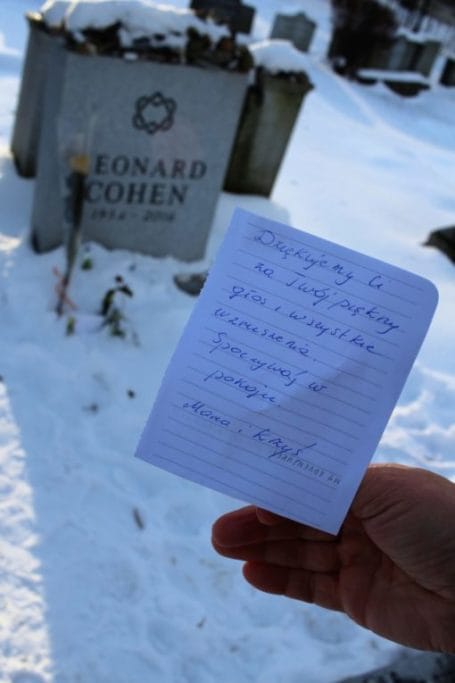 LEONARD
COHEN
1934 - 2016
Dziękujemy Ci
za swój piękny
głos i wszystkie
wzruszenia.
Spoczywaj w
pokoju.
i Krzyś